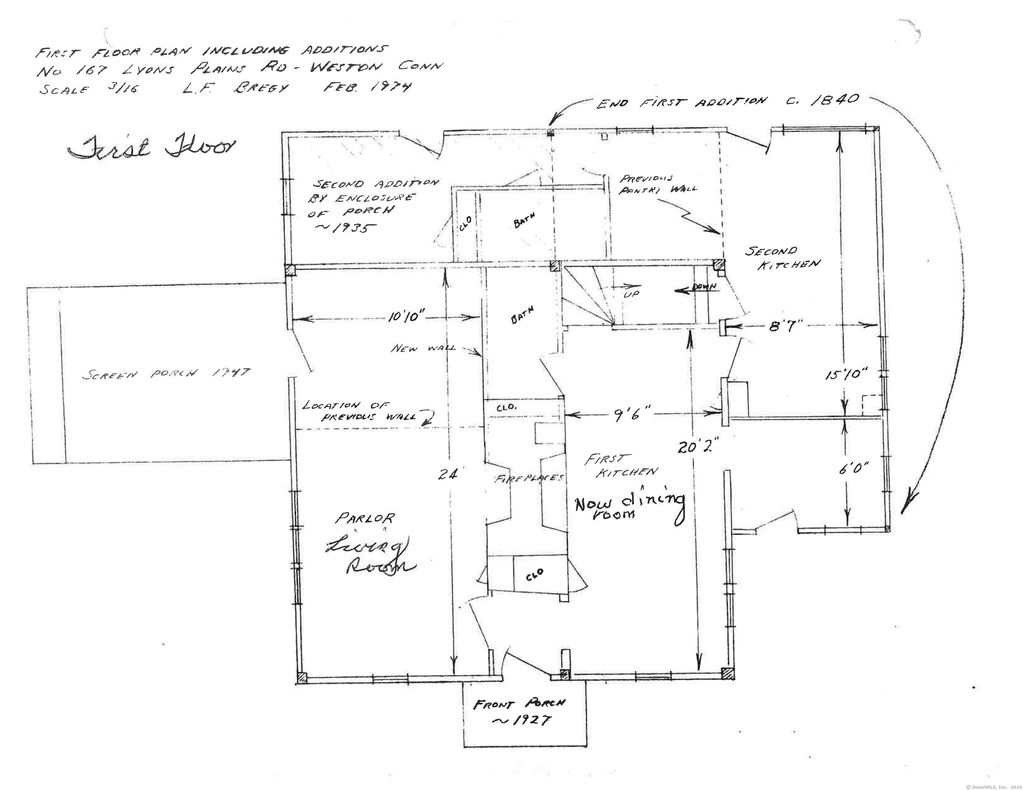 FIRST FLOOR PLAN INCLUDING ADDITIONS
No 167 LYONS PLAINS RD - WESTON CONN
SCALE 3/16 L.F. BREGY FEB. 1974
First Floor
END FIRST ADDITION C. 1840
SECOND ADDITION
BY ENCLOSURE
OF PORCH
~1935
CLO
BATH
PREVIOUS
PANTRY WALL
SECOND
KITCHEN
UP
DOWN
10'10"
BATH
8'7"
NEW WALL
SCREEN PORCH 1947
15'10"
LOCATION OF
PREVIOUS WALL
CLO.
9'6"
20'2"
24'
FIREPLACES
FIRST
KITCHEN
6'0"
Now dining
room
PARLOR
Living
Room
CLO
FRONT PORCH
~1927
© SmartMLS, Inc. 2024